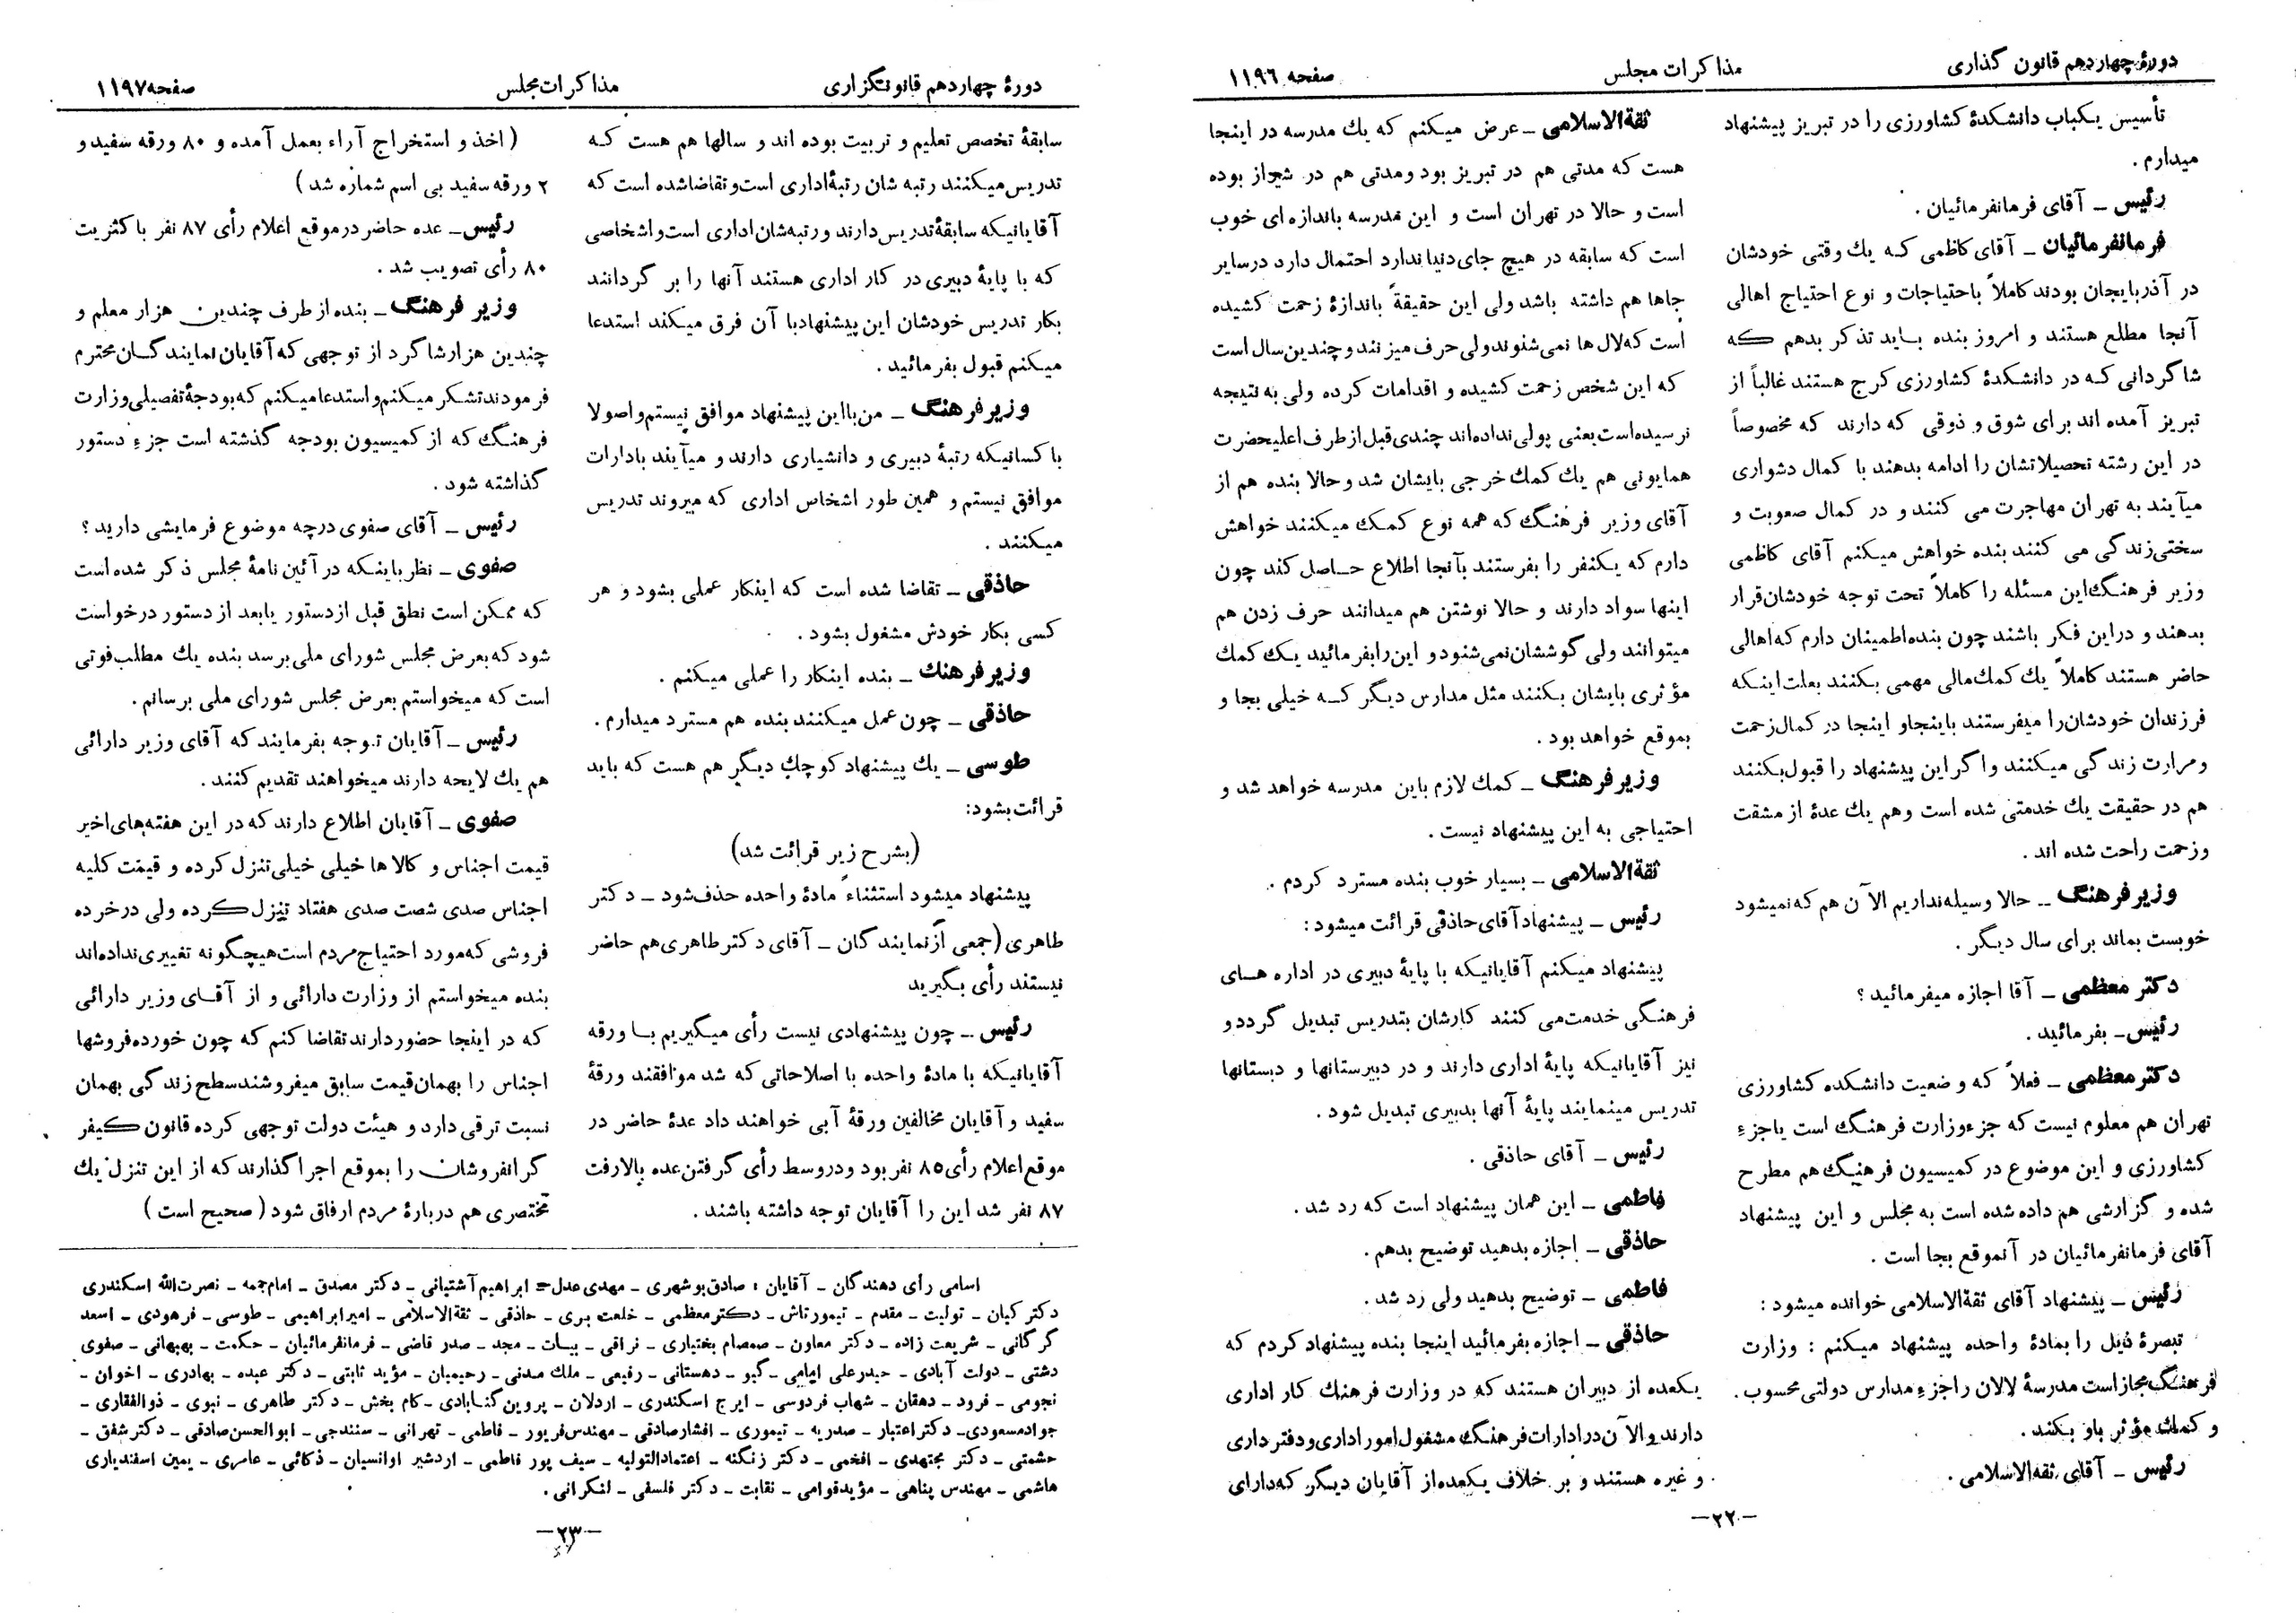 دورهٔ چهاردهم قانون گذاری
مذاکرات مجلس
صفحه ۱۱۹۶
تأسیس یکباب دانشکدهٔ کشاورزی را در تبریز پیشنهاد
میدارم .
رئیس ـ آقای فرمانفرمائیان .
فرمانفرمائیان ـ آقای کاظمی که یك وقتی خودشان
در آذربایجان بودند کاملاً باحتیاجات و نوع احتیاج اهالی
آنجا مطلع هستند و امروز بنده باید تذکر بدهم که
شاگردانی که در دانشکدهٔ کشاورزی کرج هستند غالباً از
تبریز آمده اند برای شوق و ذوقی که دارند که مخصوصاً
در این رشته تحصیلاتشان را ادامه بدهند با کمال دشواری
میآیند به تهران مهاجرت می کنند و در کمال صعوبت و
سختی زندگی می کنند بنده خواهش میکنم آقای کاظمی
وزیر فرهنگ این مسئله را کاملاً تحت توجه خودشان قرار
بدهند و در این فکر باشند چون بنده اطمینان دارم که اهالی
حاضر هستند کاملاً یك کمك مالی مهمی بکنند بعلت اینکه
فرزندان خودشان را میفرستند باینجا و اینجا در کمال زحمت
و مرارت زندگی میکنند و اگر این پیشنهاد را قبول بکنند
هم در حقیقت یك خدمتی شده است و هم یك عدهٔ از مشقت
و زحمت راحت شده اند .
وزیر فرهنگ ـ حالا وسیله نداریم الآن هم که نمیشود
خوبست بماند برای سال دیگر .
دکتر معظمی ـ آقا اجازه میفرمائید ؟
رئیس ـ بفرمائید .
دکتر معظمی ـ فعلاً که وضعیت دانشکده کشاورزی
تهران هم معلوم نیست که جزء وزارت فرهنگ است یا جزء
کشاورزی و این موضوع در کمیسیون فرهنگ هم مطرح
شده و گزارشی هم داده شده است به مجلس و این پیشنهاد
آقای فرمانفرمائیان در آنموقع بجا است .
رئیس ـ پیشنهاد آقای ثقةالاسلامی خوانده میشود :
تبصرهٔ ذیل را بمادهٔ واحده پیشنهاد میکنم : وزارت
فرهنگ مجاز است مدرسهٔ لالان را جزء مدارس دولتی محسوب .
و کمك مؤثر باو بکنند .
رئیس ـ آقای ثقةالاسلامی .
ثقةالاسلامی ـ عرض میکنم که یك مدرسه در اینجا
هست که مدتی هم در تبریز بود و مدتی هم در شیراز بوده
است و حالا در تهران است و این مدرسه باندازه ای خوب
است که سابقه در هیچ جای دنیا ندارد احتمال دارد در سایر
جاها هم داشته باشد ولی این حقیقةً باندازهٔ زحمت کشیده
است که لال ها نمی شنوند ولی حرف میزنند و چندین سال است
که این شخص زحمت کشیده و اقدامات کرده ولی به نتیجه
نرسیده است یعنی پولی نداده اند چندی قبل از طرف اعلیحضرت
همایونی هم یك کمك خرجی بایشان شد و حالا بنده هم از
آقای وزیر فرهنگ که همه نوع کمک میکنند خواهش
دارم که یکنفر را بفرستند بآنجا اطلاع حاصل کند چون
اینها سواد دارند و حالا نوشتن هم میدانند حرف زدن هم
میتوانند ولی گوششان نمی شنود و این را بفرمائید یک کمك
مؤثری بایشان بکنند مثل مدارس دیگر که خیلی بجا و
بموقع خواهد بود .
وزیر فرهنگ ـ کمك لازم باین مدرسه خواهد شد و
احتیاجی به این پیشنهاد نیست .
ثقةالاسلامی ـ بسیار خوب بنده مسترد کردم .
رئیس ـ پیشنهاد آقای حاذقی قرائت میشود :
پیشنهاد میکنم آقایانیکه با پایهٔ دبیری در اداره های
فرهنگی خدمت می کنند کارشان بتدریس تبدیل گردد و
نیز آقایانیکه پایهٔ اداری دارند و در دبیرستانها و دبستانها
تدریس مینمایند پایهٔ آنها بدبیری تبدیل شود .
رئیس ـ آقای حاذقی .
فاطمی ـ این همان پیشنهاد است که رد شد .
حاذقی ـ اجازه بدهید توضیح بدهم .
فاطمی ـ توضیح بدهید ولی رد شد .
حاذقی ـ اجازه بفرمائید اینجا بنده پیشنهاد کردم که
یکعده از دبیران هستند که در وزارت فرهنك کار اداری
دارند و الآن در ادارات فرهنگ مشغول امور اداری و دفتر داری
و غیره هستند و بر خلاف یکعده از آقایان دیگر که دارای
ـ۲۲ـ
دورهٔ چهاردهم قانونگزاری
مذاکرات مجلس
صفحه ۱۱۹۷
سابقهٔ تخصص تعلیم و تربیت بوده اند و سالها هم هست که
تدریس میکنند رتبه شان رتبهٔ اداری است و تقاضا شده است که
آقایانیکه سابقهٔ تدریس دارند و رتبه شان اداری است و اشخاصی
که با پایهٔ دبیری در کار اداری هستند آنها را بر گردانند
بکار تدریس خودشان این پیشنهاد با آن فرق میکند استدعا
میکنم قبول بفرمائید .
وزیر فرهنگ ـ من با این پیشنهاد موافق نیستم و اصولا
با کسانیکه رتبهٔ دبیری و دانشیاری دارند و میآیند بادارات
موافق نیستم و همین طور اشخاص اداری که میروند تدریس
میکنند .
حاذقی ـ تقاضا شده است که اینکار عملی بشود و هر
کسی بکار خودش مشغول بشود .
وزیر فرهنك ـ بنده اینکار را عملی میکنم .
حاذقی ـ چون عمل میکنند بنده هم مسترد میدارم .
طوسی ـ یك پیشنهاد کوچك دیگر هم هست که باید
قرائت بشود:
(بشرح زیر قرائت شد)
پیشنهاد میشود استثناء مادهٔ واحده حذف شود ـ دکتر
طاهری (جمعی از نمایندگان ـ آقای دکتر طاهری هم حاضر
نیستند رأی بگیرید
رئیس ـ چون پیشنهادی نیست رأی میگیریم با ورقه
آقایانیکه با مادهٔ واحده با اصلاحاتی که شد موافقند ورقهٔ
سفید و آقایان مخالفین ورقهٔ آبی خواهند داد عدهٔ حاضر در
موقع اعلام رأی ۸۵ نفر بود و در وسط رأی گرفتن عده بالا رفت
۸۷ نفر شد این را آقایان توجه داشته باشند .
( اخذ و استخراج آراء بعمل آمده و ۸۰ ورقه سفید و
۲ ورقه سفید بی اسم شماره شد )
رئیس ـ عده حاضر در موقع اعلام رأی ۸۷ نفر با کثریت
۸۰ رأی تصویب شد .
وزیر فرهنگ ـ بنده از طرف چندین هزار معلم و
چندین هزار شاگرد از توجهی که آقایان نمایندگان محترم
فرمودند تشکر میکنم و استدعا میکنم که بودجهٔ تفصیلی وزارت
فرهنگ که از کمیسیون بودجه گذشته است جزء دستور
گذاشته شود .
رئیس ـ آقای صفوی در چه موضوع فرمایشی دارید ؟
صفوی ـ نظر باینکه در آئین نامهٔ مجلس ذکر شده است
که ممکن است نطق قبل از دستور یا بعد از دستور درخواست
شود که بعرض مجلس شورای ملی برسد بنده یك مطلب فوتی
است که میخواستم بعرض مجلس شورای ملی برسانم .
رئیس ـ آقایان توجه بفرمایند که آقای وزیر دارائی
هم یك لایحه دارند میخواهند تقدیم کنند .
صفوی ـ آقایان اطلاع دارند که در این هفته های اخیر
قیمت اجناس و کالا ها خیلی خیلی تنزل کرده و قیمت کلیه
اجناس صدی شصت صدی هفتاد تنزل کرده ولی در خرده
فروشی که مورد احتیاج مردم است هیچگونه تغییری نداده اند
بنده میخواستم از وزارت دارائی و از آقای وزیر دارائی
که در اینجا حضور دارند تقاضا کنم که چون خورده فروشها
اجناس را بهمان قیمت سابق میفروشند سطح زندگی بهمان
نسبت ترقی دارد و هیئت دولت توجهی کرده قانون کیفر
گرانفروشان را بموقع اجرا گذارند که از این تنزل یك
مختصری هم دربارهٔ مردم ارفاق شود ( صحیح است )
اسامی رأی دهندگان ـ آقایان : صادق بوشهری ـ مهدی عدل = ابراهیم آشتیانی ـ دکتر مصدق ـ امام جمعه ـ نصرت الله اسکندری
دکتر کیان ـ تولیت ـ مقدم ـ تیمورتاش ـ دکتر معظمی ـ خلعت بری ـ حاذقی ـ ثقةالاسلامی ـ امیر ابراهیمی ـ طوسی ـ فرهودی ـ اسعد
گرگانی ـ شریعت زاده ـ دکتر معاون ـ صمصام بختیاری ـ نراقی ـ بیات ـ مجد ـ صدر قاضی ـ فرمانفرمائیان ـ حکمت ـ بهبهانی ـ صفوی
دشتی ـ دولت آبادی ـ حیدرعلی امامی ـ گیو ـ دهستانی ـ رفیعی ـ ملك مدنی ـ رحیمیان ـ مؤید ثابتی ـ دکتر عبده ـ بهادری ـ اخوان ـ
نجومی ـ فرود ـ دهقان ـ شهاب فردوسی ـ ایرج اسکندری ـ اردلان ـ پروین گنابادی ـ کام بخش ـ دکتر طاهری ـ نبوی ـ ذوالفقاری ـ
جواد مسعودی ـ دکتر اعتبار ـ صدریه ـ تیموری ـ افشار صادقی ـ مهندس فریور ـ فاطمی ـ تهرانی ـ سنندجی ـ ابوالحسن صادقی ـ دکتر شفق ـ
حشمتی ـ دکتر مجتهدی ـ افخمی ـ دکتر زنگنه ـ اعتمادالتولیه ـ سیف پور فاطمی ـ اردشیر اوانسیان ـ ذکائی ـ عامری ـ یمین اسفندیاری
هاشمی ـ مهندس پناهی ـ مؤید قوامی ـ نقابت ـ دکتر فلسفی ـ لنکرانی .
ـ۲۳ـ